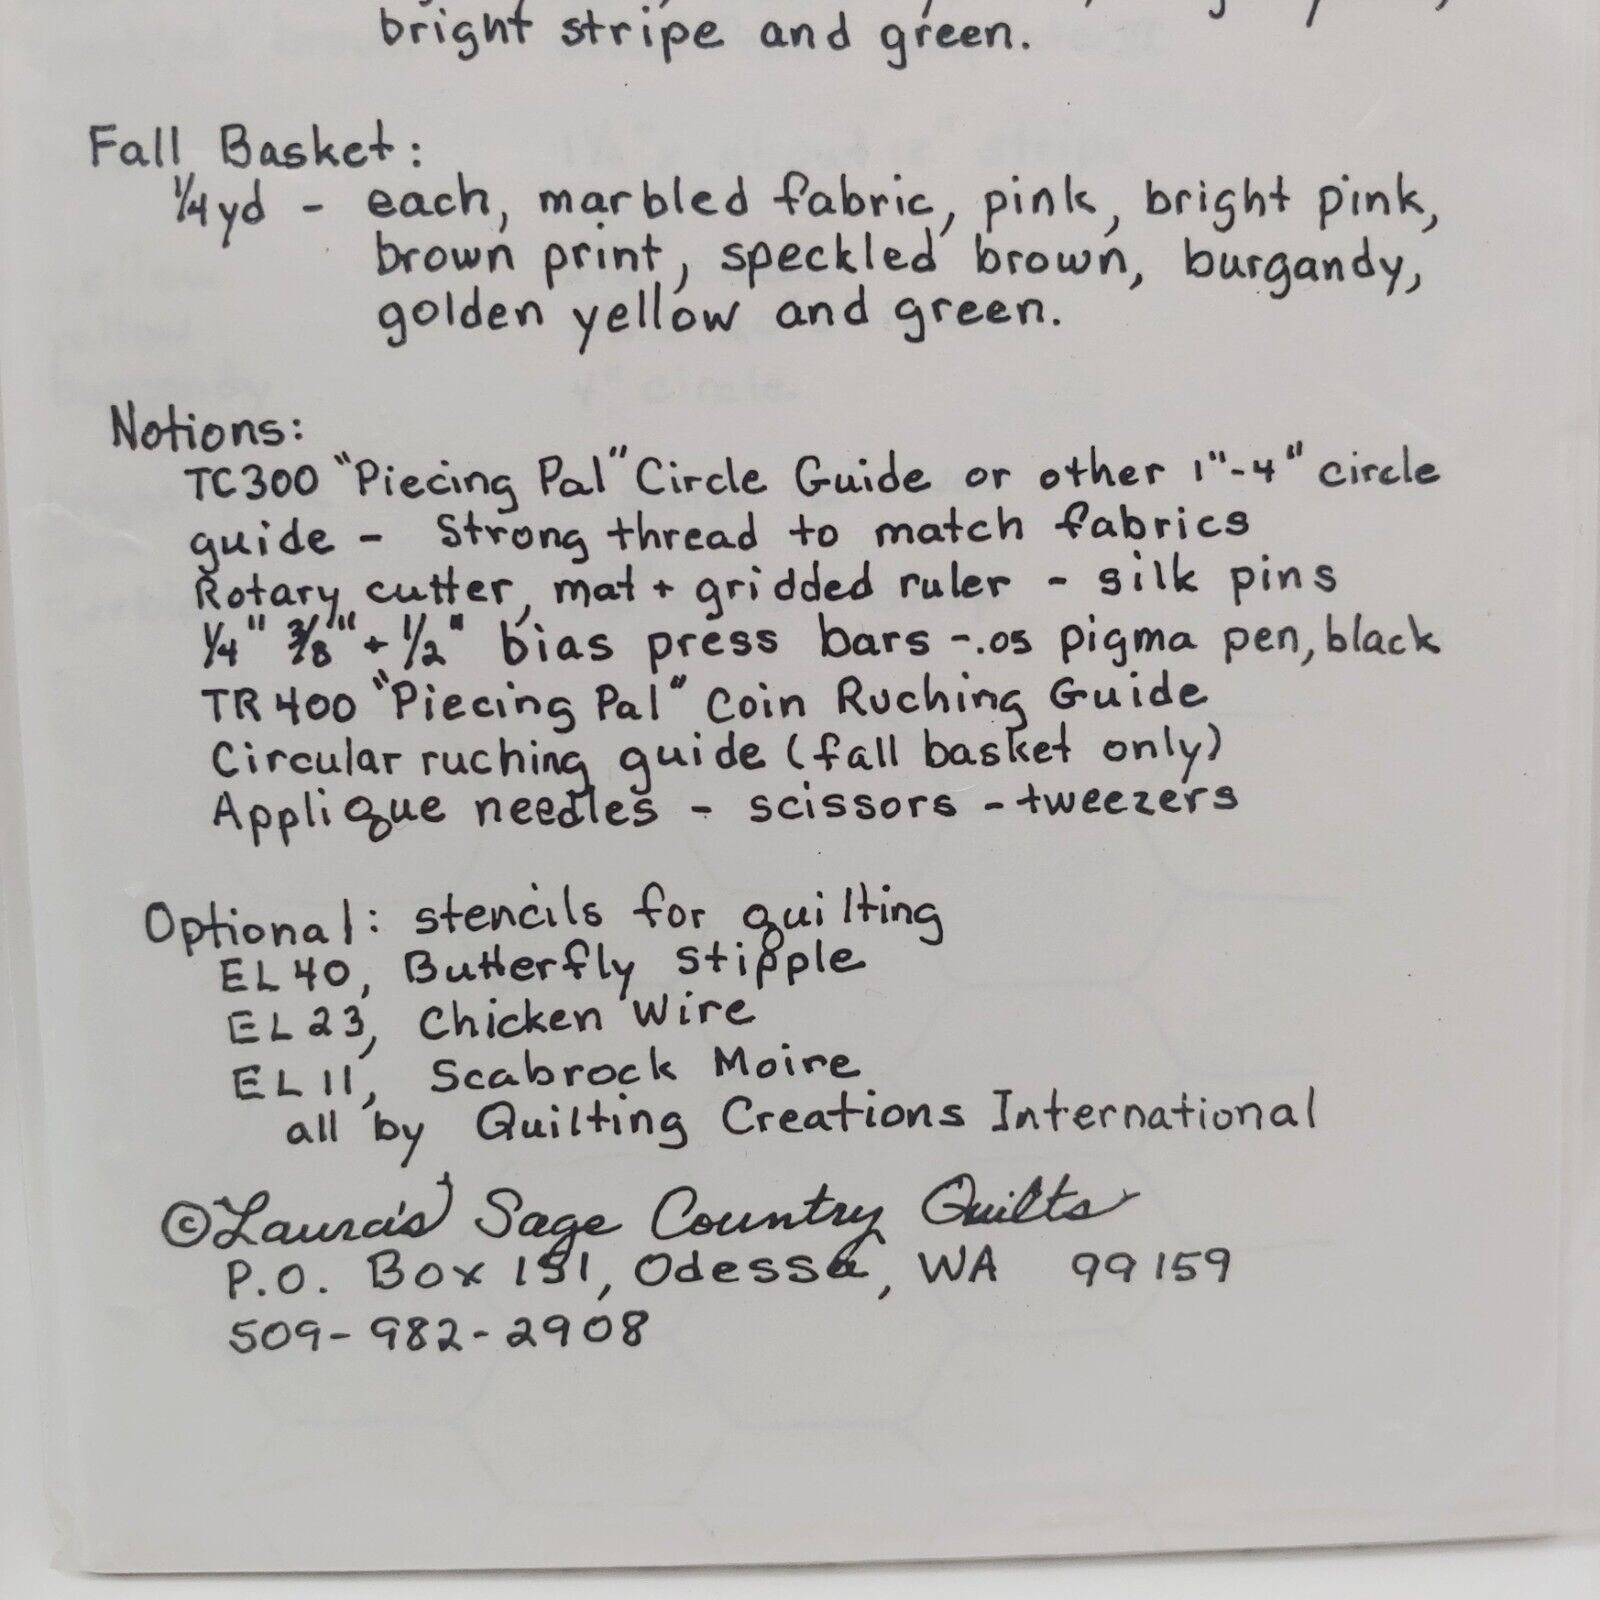 bright stripe and green.
Fall Basket:
1/4 yd - each, marbled fabric, pink, bright pink,
brown print, speckled brown, burgandy,
golden yellow and green.
Notions:
TC300 "Piecing Pal" Circle Guide or other 1"-4" circle
guide - Strong thread to match fabrics
Rotary cutter, mat + gridded ruler - silk pins
1/4" 3/8" + 1/2" bias press bars -.05 pigma pen, black
TR400 "Piecing Pal" Coin Ruching Guide
Circular ruching guide (fall basket only)
Applique needles - scissors - tweezers
Optional: stencils for quilting
EL40, Butterfly Stipple
EL23, Chicken Wire
EL11, Scabrock Moire
all by Quilting Creations International
©Laura's Sage Country Quilts
P.O. Box 151, Odessa, WA 99159
509-982-2908